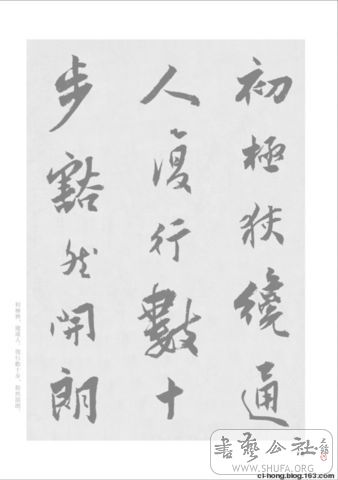 初極狹纔通
人復行數十
步豁然開朗
初極狹，纔通人。復行數十步，豁然開朗。
書藝公社
WWW.SHUFA.ORG
cl-hong.blog.163.com